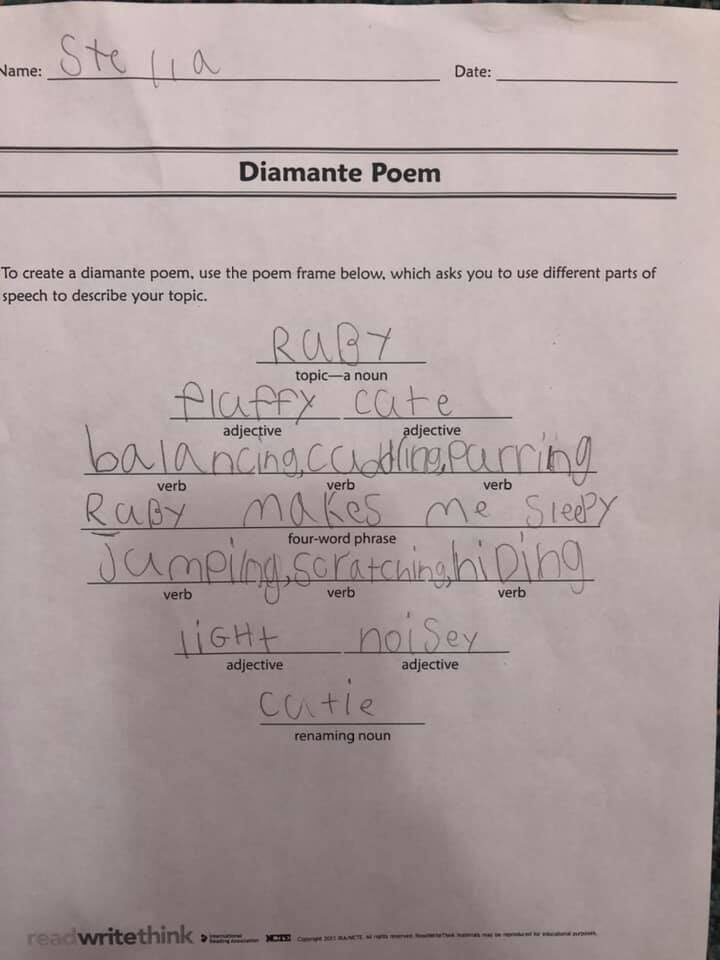 Name: Stella Date:
Diamante Poem
To create a diamante poem, use the poem frame below, which asks you to use different parts of
speech to describe your topic.
RuBY
topic—a noun
fluffy cute
adjective adjective
balancing, cuddling, purring
verb verb verb
RuBy makes me sleepy
four-word phrase
Jumping, scratching, hiDing
verb verb verb
liGHt noisey
adjective adjective
cutie
renaming noun
readwritethink International Reading Association NCTE Copyright 2011 IRA/NCTE. All rights reserved. ReadWriteThink materials may be reproduced for educational purposes.